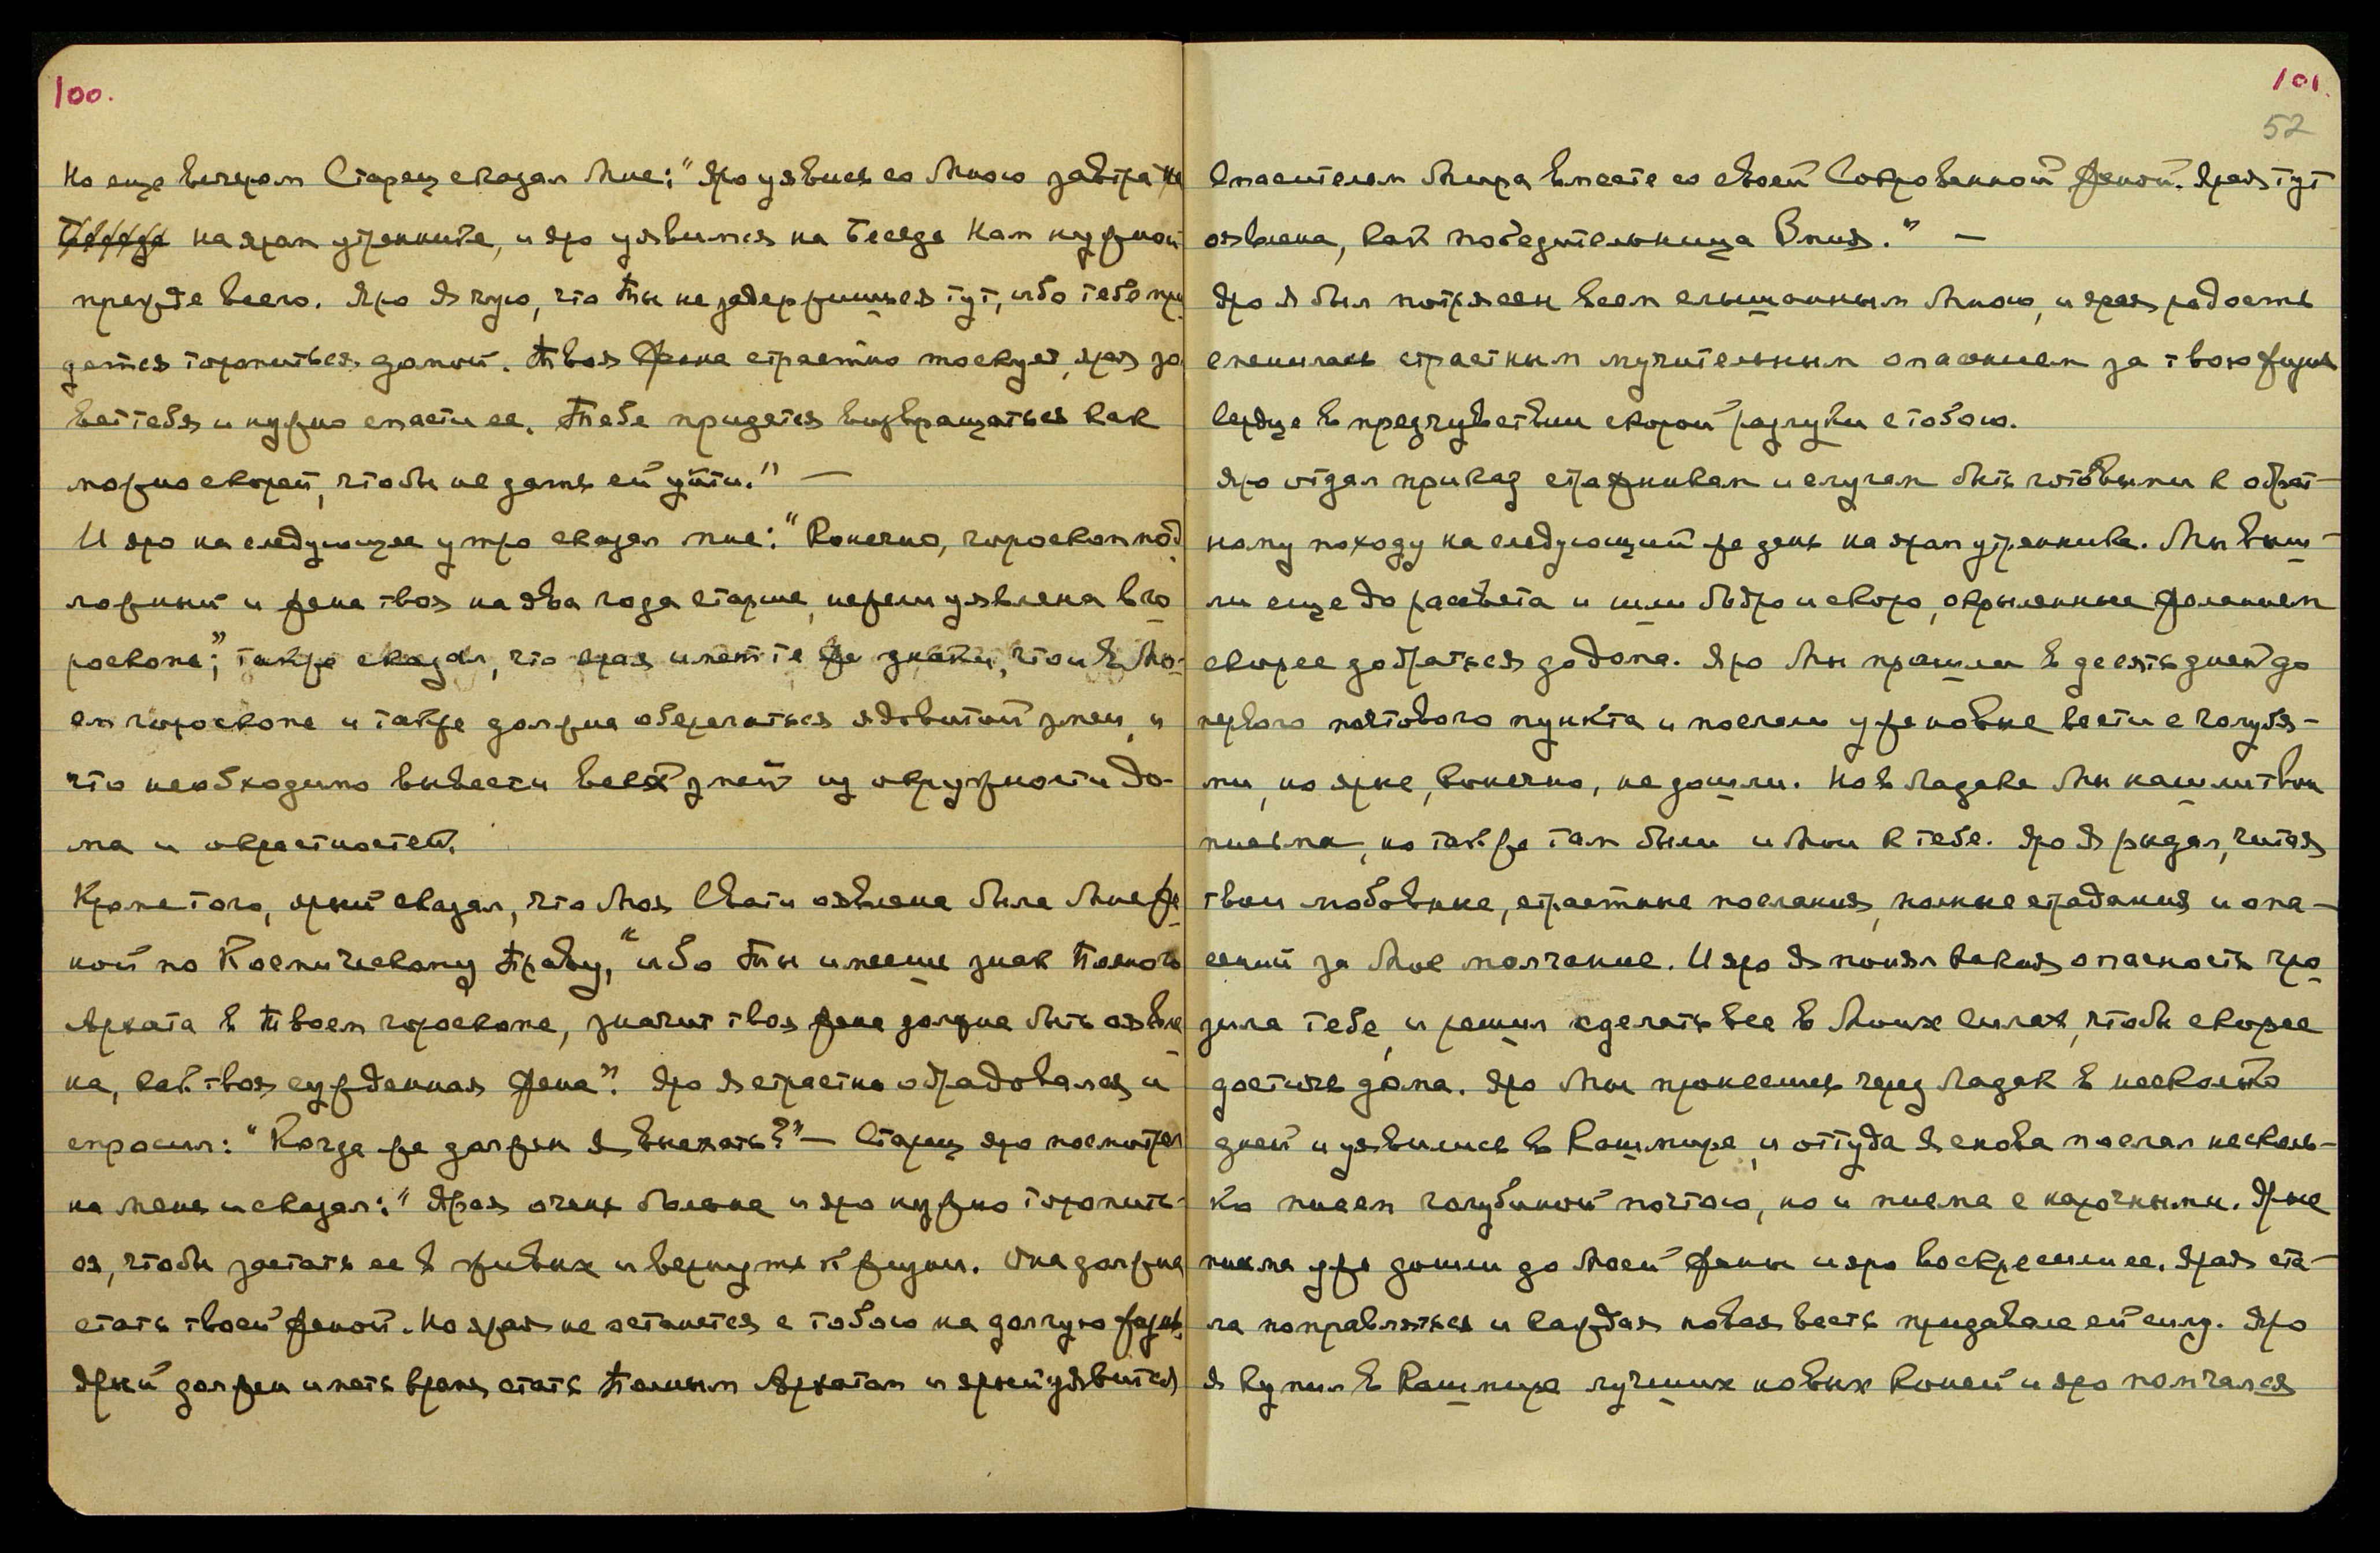 100.
Но еще вечером Старец сказал Мне: "Яро уявися со Мною завтра на
Беседе на яром утреннике, и яро уявимся на Беседе Нам нужной
прежде всего. Яро Я чую, что Ты не задержишься тут, ибо тебе при
дется торопиться домой. Твоя Жена страстно тоскует, ярая зо
вет тебя и нужно спасти ее. Тебе придется возвращаться как
можно скорей, чтобы не дать ей уйти." —
И яро на следующее утро сказал мне: "Конечно, гороскоп под
ложный и жена твоя на два года старше, нежели уявлена в го
роскопе;" также сказал, что ярая имеет те же знаки, что и в Мо-
ем гороскопе и также должна оберегаться ядовитой змеи, и
что необходимо вывести всех змей из окружности до-
ма и окрестностей.
Кроме того, ярый сказал, что Моя Свати оявлена была Мне же
ной по Космическому Праву, "ибо Ты имееше знак Полного
Архата в Твоем гороскопе, значит твоя жена должна быть оявле
на, как твоя сужденная Жена". Яро Я страстно обрадовался и
спросил: "Когда же должен Я выехать?" — Старец яро посмотрел
на меня и сказал: "Ярая очень больна и яро нужно торопить-
ся, чтобы застать ее в живых и вернуть к жизни. Она должна
стать твоей женой. Но ярая не останется с тобою на долгую жизнь.
Ярый должен иметь время стать Полным Архатом и ярый уявится
101.
52
Спасителем Мира вместе со своей Сокровенной Женой. Ярая тут
оявлена, как победительница Змия." —
Яро Я был потрясен всем слышанным Мною, и ярая радость
сменилась страстным мучительным опасением за твою жизнь
Сердце в предчувствии скорой разлуки с тобою.
Яро отдал приказ стражникам и слугам быть готовыми к обрат-
ному походу на следующий же день на яром утреннике. Мы выш-
ли еще до рассвета и шли бодро и скоро, окрыленные желанием
скорее добраться до дома. Яро Мы прошли в десять дней до
первого почтового пункта и послали уже новые вести с голубя-
ми, но ярые, конечно, не дошли. Но в Ладаке Мы нашли твои
письма, но также там были и Мои к тебе. Яро Я рыдал, читая
твои любовные, страстные послания, полные страдания и опа-
сений за Мое молчание. И яро Я понял какая опасность гро
зила тебе, и решил сделать все в Моих силах, чтобы скорее
достичь дома. Яро Мы пронеслись через Ладак в несколько
дней и уявились в Кашмире, и оттуда Я снова послал несколь-
ко писем голубиной почтою, но и письма с нарочными. Ярые
письма уже дошли до Моей Жены и яро воскресили ее. Ярая ста-
ла поправляться и каждая новая весть придавала ей силу. Яро
Я купил в Кашмире лучших новых коней и яро помчался